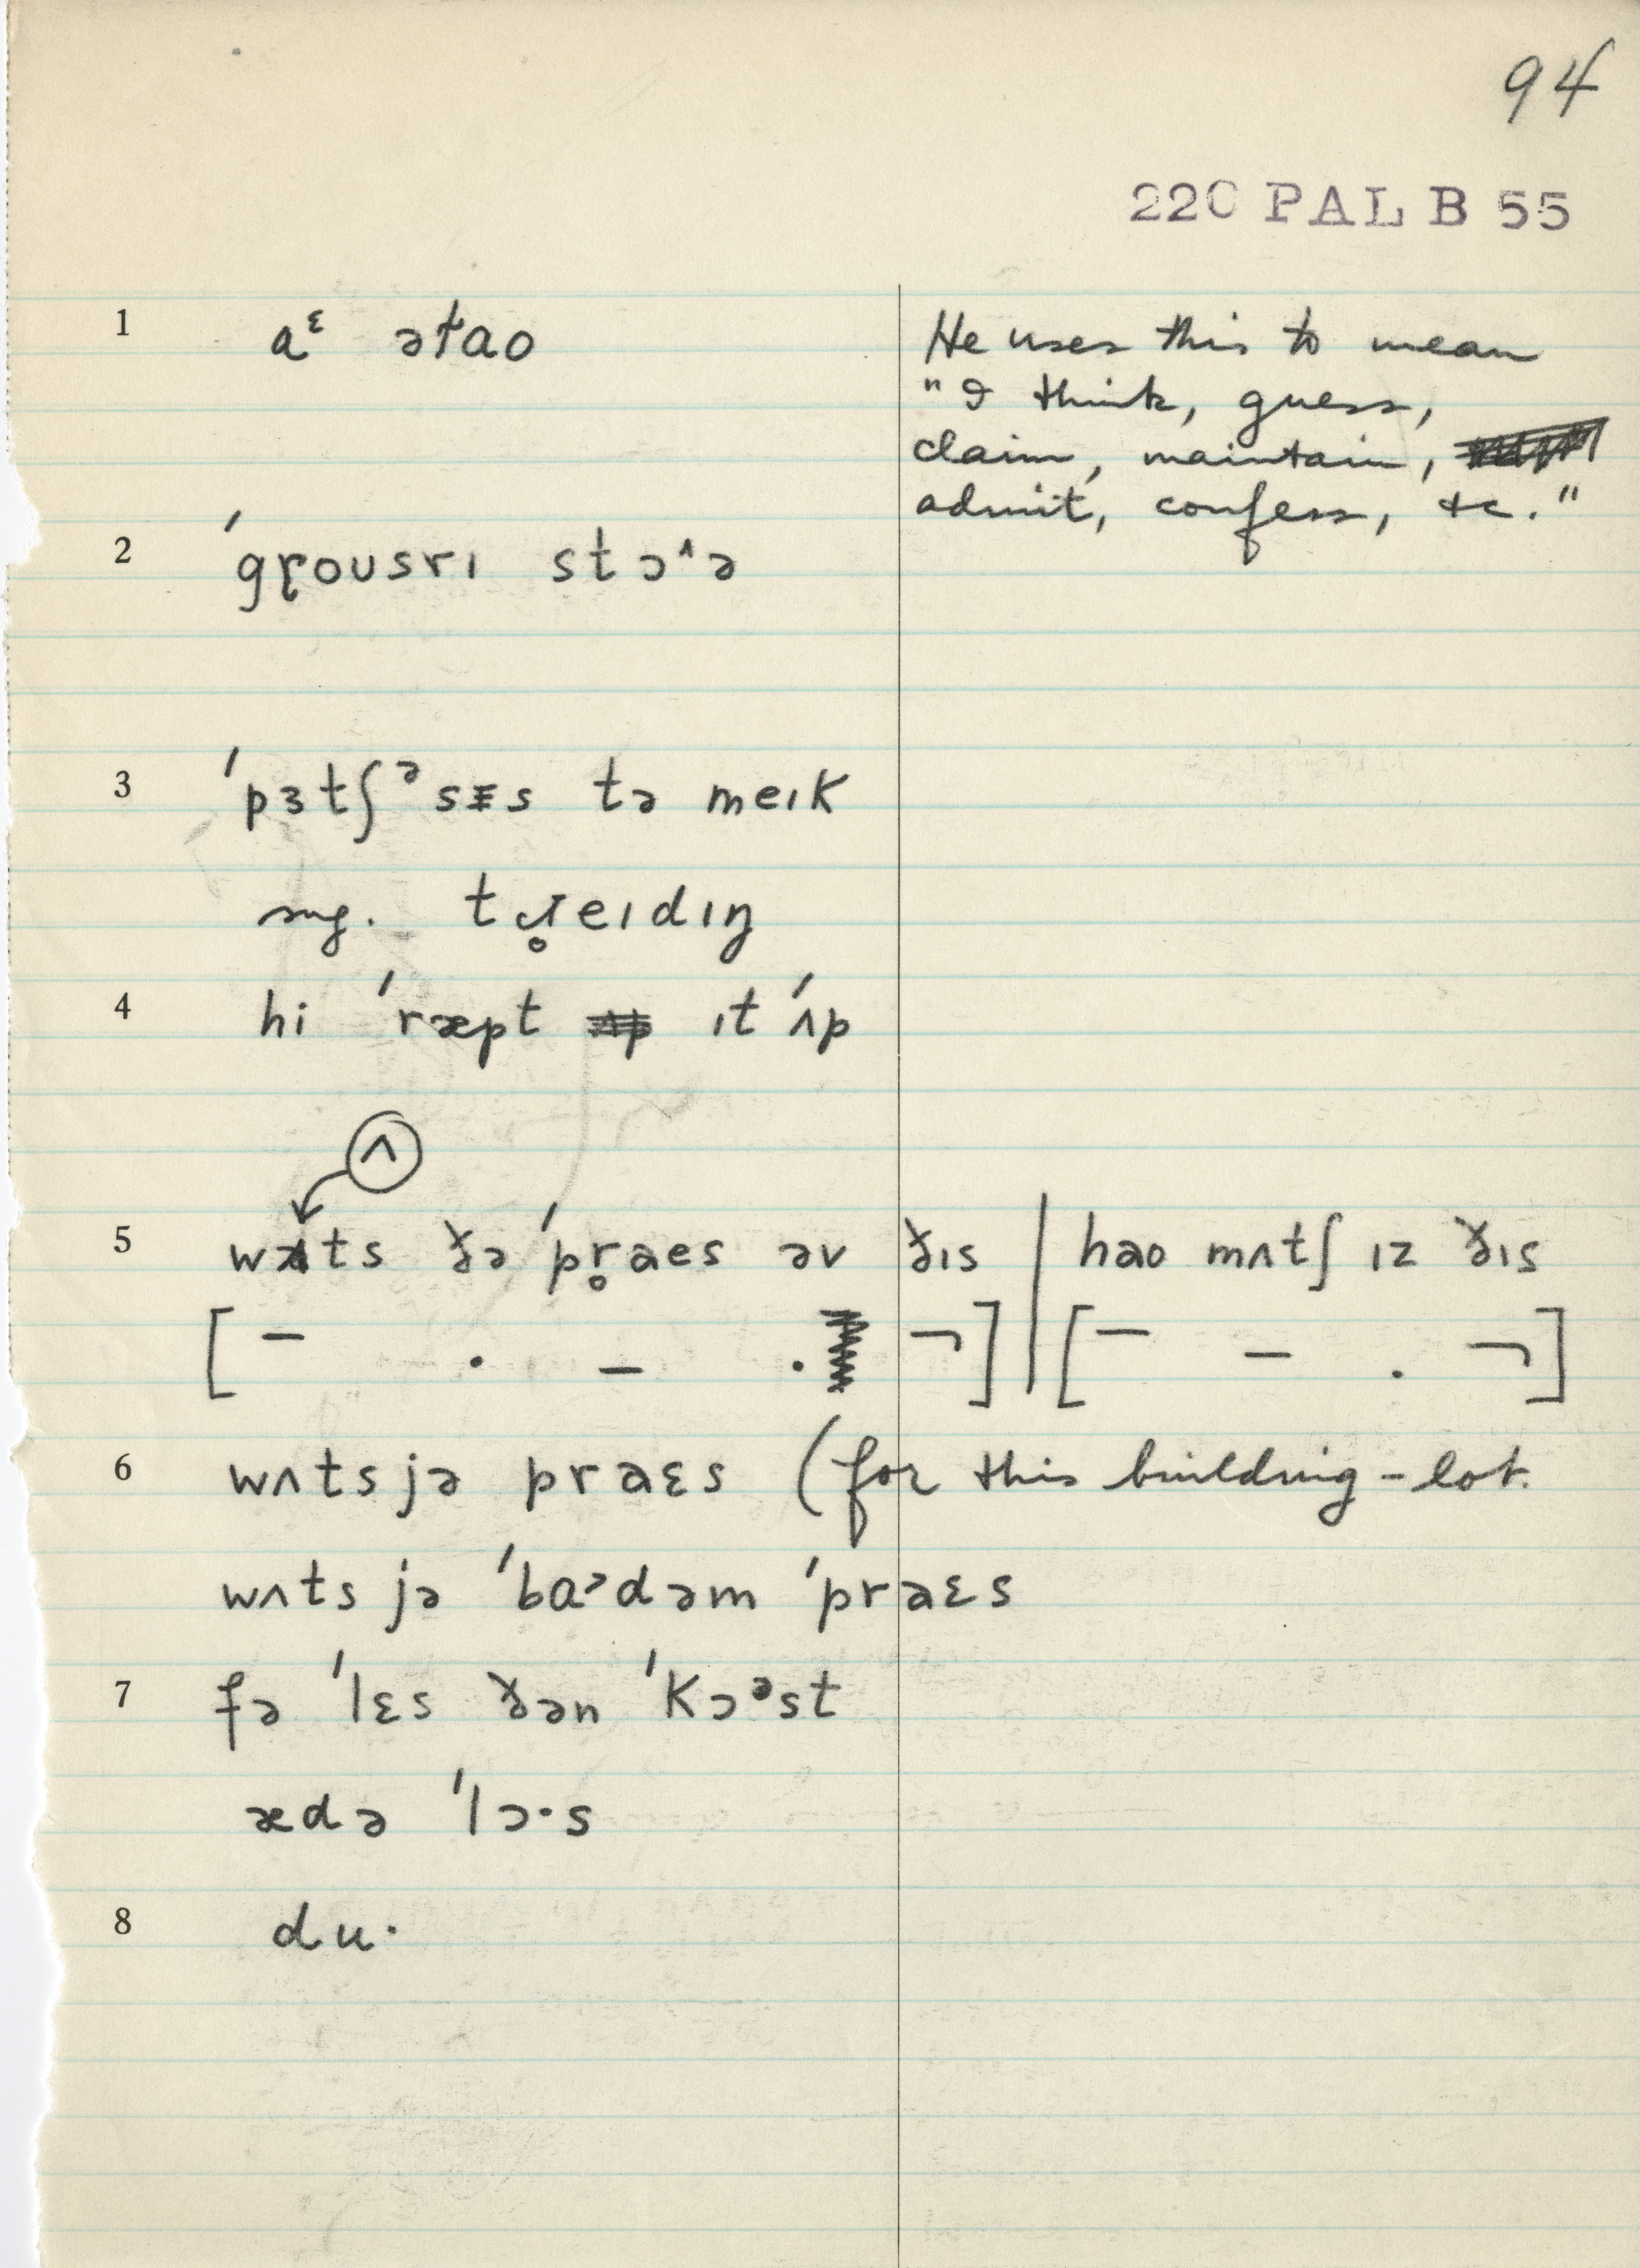 94
220 PAL B 55
1 aᵋ əťao He uses this to mean
"I think, guess,
claim, maintain,
admit, confess, &c."
2 ˈgɽousrɪ stɔ^ə
3 ˈpɜtʃᵊsɛs tə meɪk
sug. tɹ̥eɪdɪŋ
4 hi ˈræpt ɪt ˈʌp
ʌ
5 wʌts ðə ˈpr̥aes əv ðɪs | hao mʌtʃ ɪz ðɪs
[ – . – . ¬ ] | [ – – . ¬ ]
6 wʌts jə praɛs (for this building-lot.
wʌts jə ˈbaᵊdəm ˈpraɛs
7 fə ˈlɛs ðən ˈkɔᵊst
ædə ˈlɔ·s
8 du·